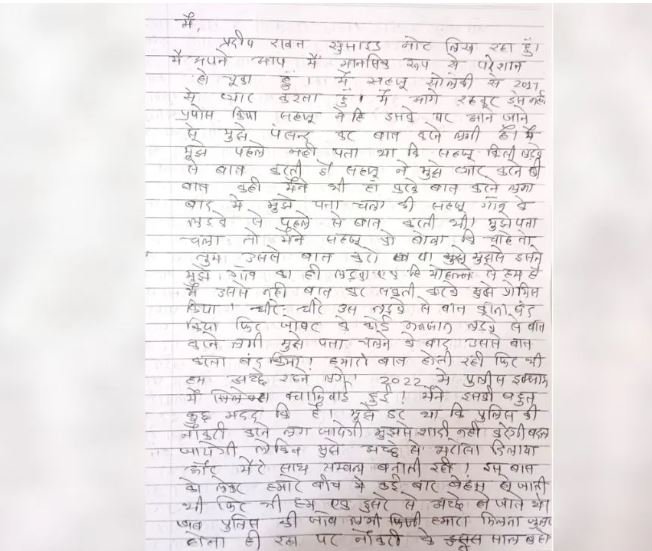 मैं,
प्रदीप रावत सुसाइड नोट लिख रहा हुं।
मैं अपने आप में मानसिक रूप से परेशान
हो चूका हुं। मैं सहजू सोलंकी से 2017
से प्यार करता हुं। मैं आगे रहकर इस नही
प्रपोस किया सहजू ने हि इसके घर आने जाने
से मुझे पसन्द कर बात करने लगी है। मैं
मुझे पहले नही पता था कि सहजू किसी लडके
से बात करती है सहजू ने मुझे प्यार करने की
बात कही मैंने भी हा करके बात करने लगा
बाद मे मुझे पता चला की सहजू गांव के
लडके से पहले से बात करती थी। मुझे पता
चला तो मैंने सहजू को बोला कि चाहे तो
तुम उससे बात करो या मुझसे उसने
मुझे गांव का ही लडका एक हि मोहल्ले से हम है
मैं उससे नही बात कर सकती करके मुझे प्रोमिस
किया। धीरे-धीरे उस लडके से बात करना बंद
किया फिर जावट के कोई लडके से बात
करने लगी मुझे पता चलने के बाद उससे बात
करना बंद किया! हमारी बात होती रही फिर भी
हम अच्छे रहने लगे! 2022 मे पुलीस
में हुई। मैंने इसकी बहुत
कुछ मदद कि है। मूझे डर था कि पुलिस की
नौकरी करने लग जायेगी मुझसे शादी नही करेगी बदल
जायेगी लेकिन मुझे अच्छे से भरोसा दिलाया
और मेरे साथ सम्बन्ध बनाती रही! इस बात
को लेकर हमारे बीच मे कई बार बहस हो जाती
थी फिर भी हम एक दुसरे से अच्छे हो जाते थे
जब पुलिस की जॉब लगी हमारा मिलना जुलना
होता ही रहा पर नौकरी के साल